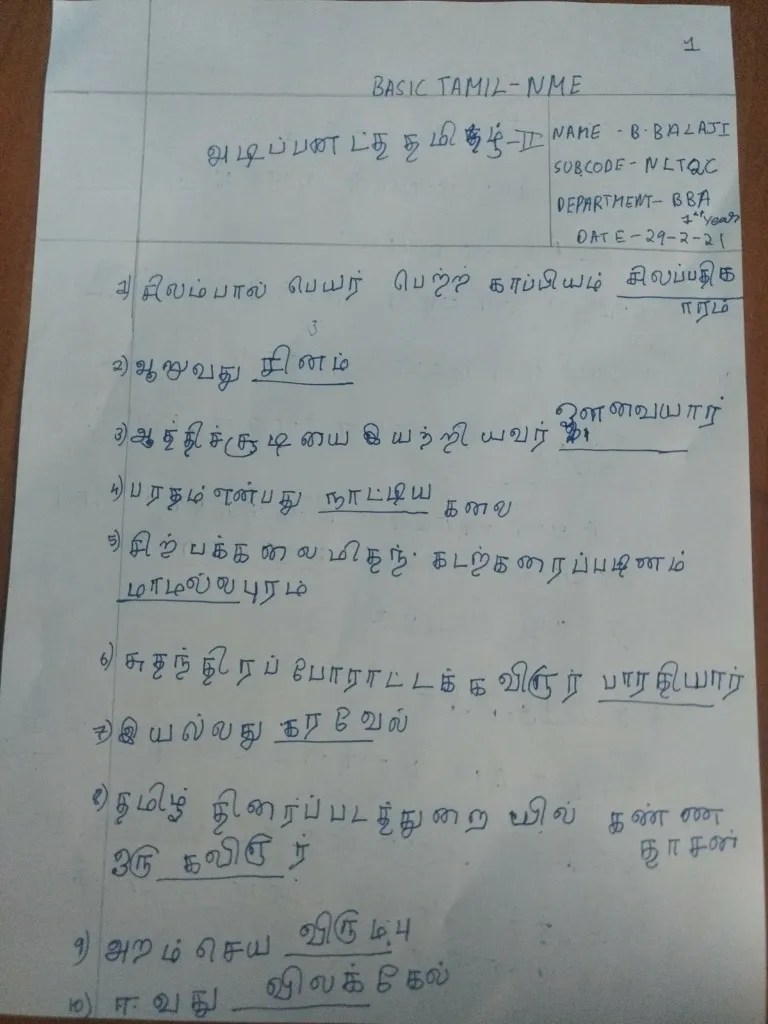 1
BASIC TAMIL-NME
அடிப்படைத் தமிழ்-II
NAME - B.BALAJI
SUBCODE- NLTQC
DEPARTMENT- BBA
1st year
DATE -29-2-21
1) சிலம்பால் பெயர் பெற்ற காப்பியம் சிலப்பதிக
ாரம்
2) ஆறுவது சினம்
3) ஆத்திச்சூடியை இயற்றியவர் ஔவையார்
4) பரதம் என்பது நாட்டிய கலை
5) சிற்பக்கலைமிகுந் கடற்கரைப்படினம்
மாமல்லபுரம்
6) சுதந்திரப் போராட்டக் கவிஞர் பாரதியார்
7) இயல்லது கரவேல்
8) தமிழ் திரைப்படத்துறை யில் கண்ண
தாசன்
ஒரு கவிஞர்
9) அறம் செய விரும்பு
10) ஈவது விலக்கேல்